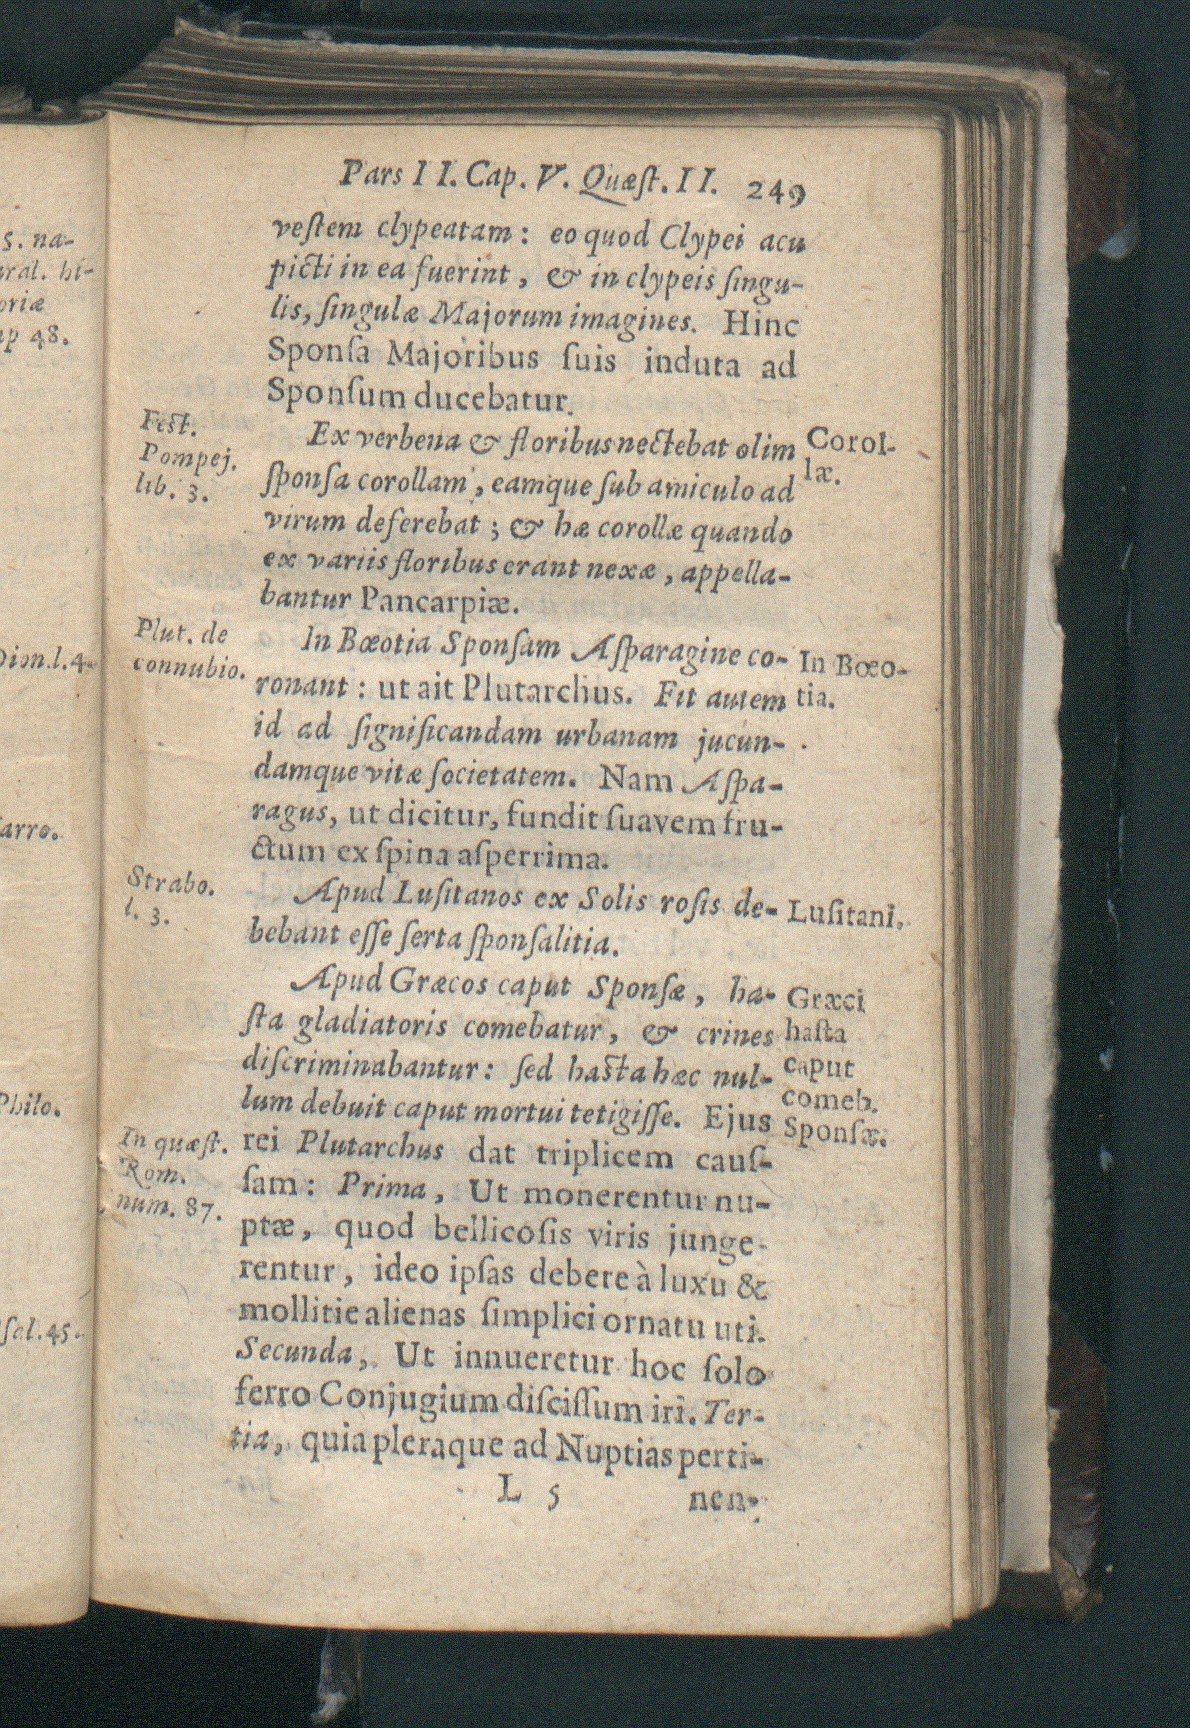 Pars II. Cap. V. Quæſt. II. 249
veſtem clypeatam: eo quod Clypei acu
picti in ea fuerint, & in clypeis ſingu-
lis, ſingulæ Majorum imagines. Hinc
Sponſa Majoribus ſuis induta ad
Sponſum ducebatur.
Fest.
Pompej.
lib. 3.
Ex verbena & floribus nectebat olim
ſponſa corollam, eamque ſub amiculo ad
virum deferebat; & hæ corollæ quando
ex variis floribus erant nexæ, appella-
bantur Pancarpiæ.
Corol-
læ.
Plut. de
connubio.
In Bœotia Sponſam Aſparagine co-
ronant: ut ait Plutarchus. Fit autem
id ad ſignificandam urbanam jucun-
damque vitæ ſocietatem. Nam Aſpa-
ragus, ut dicitur, fundit ſuavem fru-
ctum ex ſpina aſperrima.
In Bœo-
tia.
Strabo.
l. 3.
Apud Luſitanos ex Solis roſis de-
bebant eſſe ſerta ſponſalitia.
Luſitani.
Apud Græcos caput Sponſæ, ha-
ſta gladiatoris comebatur, & crines
diſcriminabantur: ſed hasta hæc nul-
lum debuit caput mortui tetigiſſe. Ejus
rei Plutarchus dat triplicem cauſ-
ſam: Prima, Ut monerentur nu-
ptæ, quod bellicoſis viris junge-
rentur, ideo ipſas debere à luxu &
mollitie alienas ſimplici ornatu uti.
Secunda, Ut innueretur hoc ſolo
ferro Conjugium diſciſſum iri. Ter-
tia, quia pleraque ad Nuptias perti-
Græci
haſta
caput
comeb.
Sponſæ.
In quæſt.
Rom.
num. 87.
L 5 nen-
5. na-
ral. hi-
oriæ
ap 48.
Dion. l. 4.
arro.
Philo.
ſal. 45.